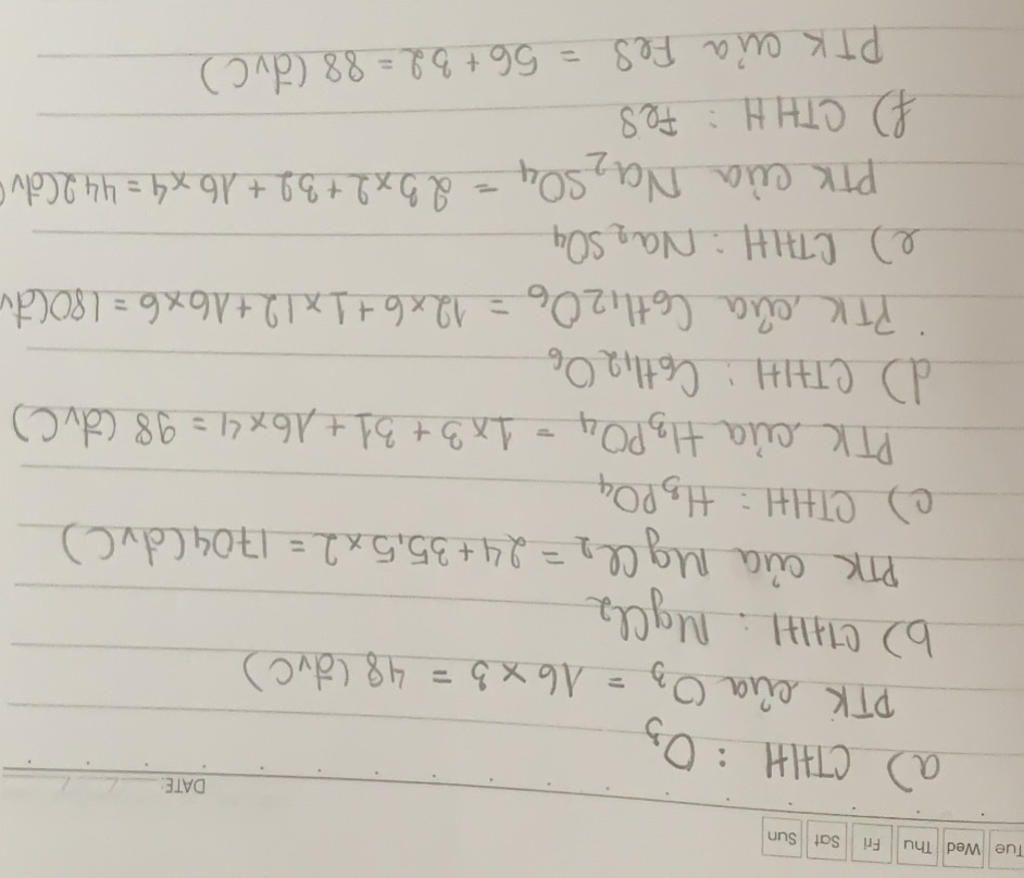 Tue Wed Thu Fri Sat Sun
DATE: / /
a) CTHH : O₃
PTK của O₃ = 16 x 3 = 48 (đvC)
b) CTHH : MgCl₂
PTK của MgCl₂ = 24 + 35,5 x 2 = 1704 (đvC)
c) CTHH : H₃PO₄
PTK của H₃PO₄ = 1 x 3 + 31 + 16 x 4 = 98 (đvC)
d) CTHH : C₆H₁₂O₆
PTK của C₆H₁₂O₆ = 12 x 6 + 1 x 12 + 16 x 6 = 180 (đv
e) CTHH : Na₂SO₄
PTK của Na₂SO₄ = 23 x 2 + 32 + 16 x 4 = 442 (đv
f) CTHH : FeS
PTK của FeS = 56 + 32 = 88 (đvC)